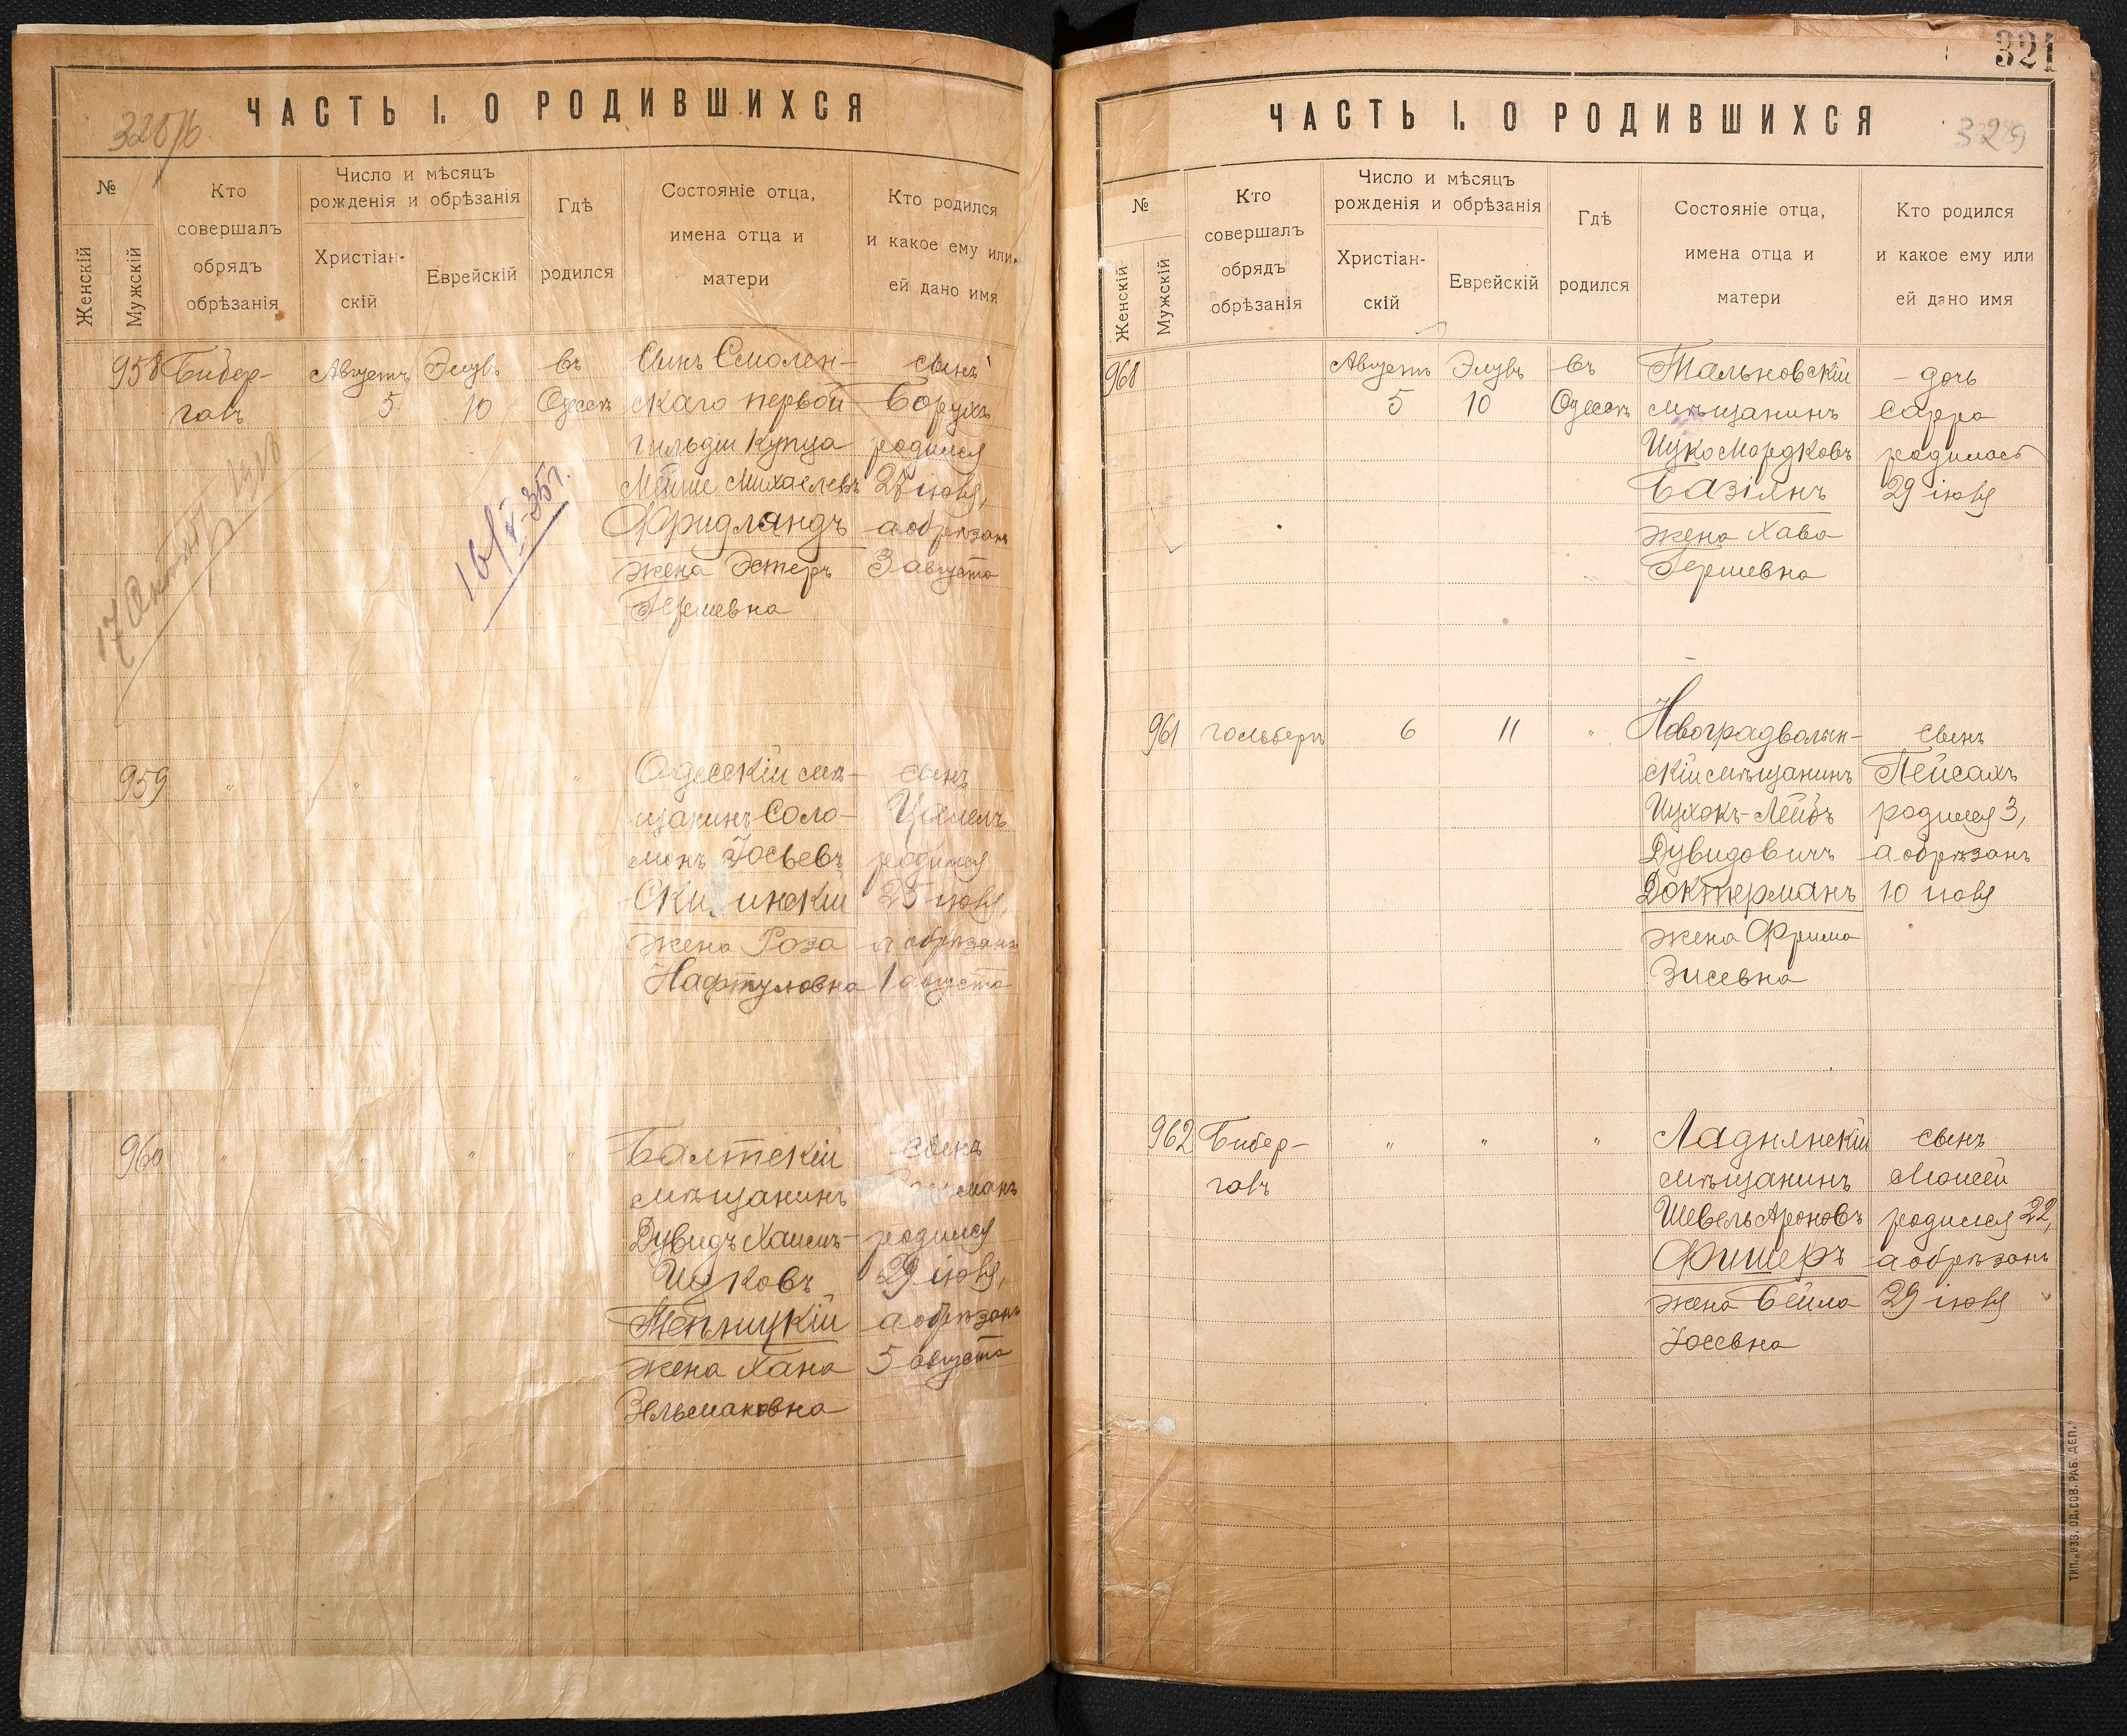 ЧАСТЬ I. О РОДИВШИХСЯ
№
Женскій
Мужскій
Кто
совершалъ
обрядъ
обрѣзанія
Число и мѣсяцъ
рожденія и обрѣзанія
Христіан-
скій
Еврейскій
Гдѣ
родился
Состояніе отца,
имена отца и
матери
Кто родился
и какое ему или
ей дано имя
958
Бибер-
галъ
Августъ
5
Элулъ
10
въ
Одессѣ
Сынъ Смолен-
скаго первой
гильдіи купца
Мойше Михаелевъ
Фридляндъ
жена Эстеръ
Гершевна
сынъ
Борухъ
родился
27 іюля,
а обрѣзанъ
3 августа
16/V-35г.
959
"
"
"
"
Одесскій мѣ-
щанинъ Соло-
монъ Іосьевъ
жена Роза
Нафтуловна
сынъ
родился
25 іюля,
а обрѣзанъ
1 августа
960
"
"
"
"
Балтскій
мѣщанинъ
Дувидъ Хаимъ-
Ицковъ
Теплицкій
жена Хана
Зельмановна
сынъ
родился
29 іюля,
а обрѣзанъ
5 августа
321
ЧАСТЬ I. О РОДИВШИХСЯ
329
№
Женскій
Мужскій
Кто
совершалъ
обрядъ
обрѣзанія
Число и мѣсяцъ
рожденія и обрѣзанія
Христіан-
скій
Еврейскій
Гдѣ
родился
Состояніе отца,
имена отца и
матери
Кто родился
и какое ему или
ей дано имя
968
Августъ
5
Элулъ
10
въ
Одессѣ
Тальновскій
мѣщанинъ
Ицко Мордковъ
Базілянъ
жена Хава
Гершевна
дочь
Сарра
родилась
29 іюля
961
Гольбергъ
6
11
"
Новоградволын-
скій мѣщанинъ
Ицхокъ-Лейбъ
Дувидовичъ
Доктерманъ
жена Фрима
Зисевна
сынъ
Пейсахъ
родился 3,
а обрѣзанъ
10 іюля
962
Бибер-
галъ
"
"
"
Ладнянскій
мѣщанинъ
Шевель Ароновъ
Фишеръ
жена Бейла
Іосевна
сынъ
Моисей
родился 22,
а обрѣзанъ
29 іюля
ТИП. „ИЗВ. ОД. СОВ. РАБ. ДЕП."